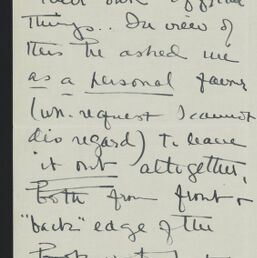 their own official
things.. In view of
this he asked me
as a personal favour
(wh. request I cannot
disregard) to leave
it out altogether,
both from front &
"back" edge of the